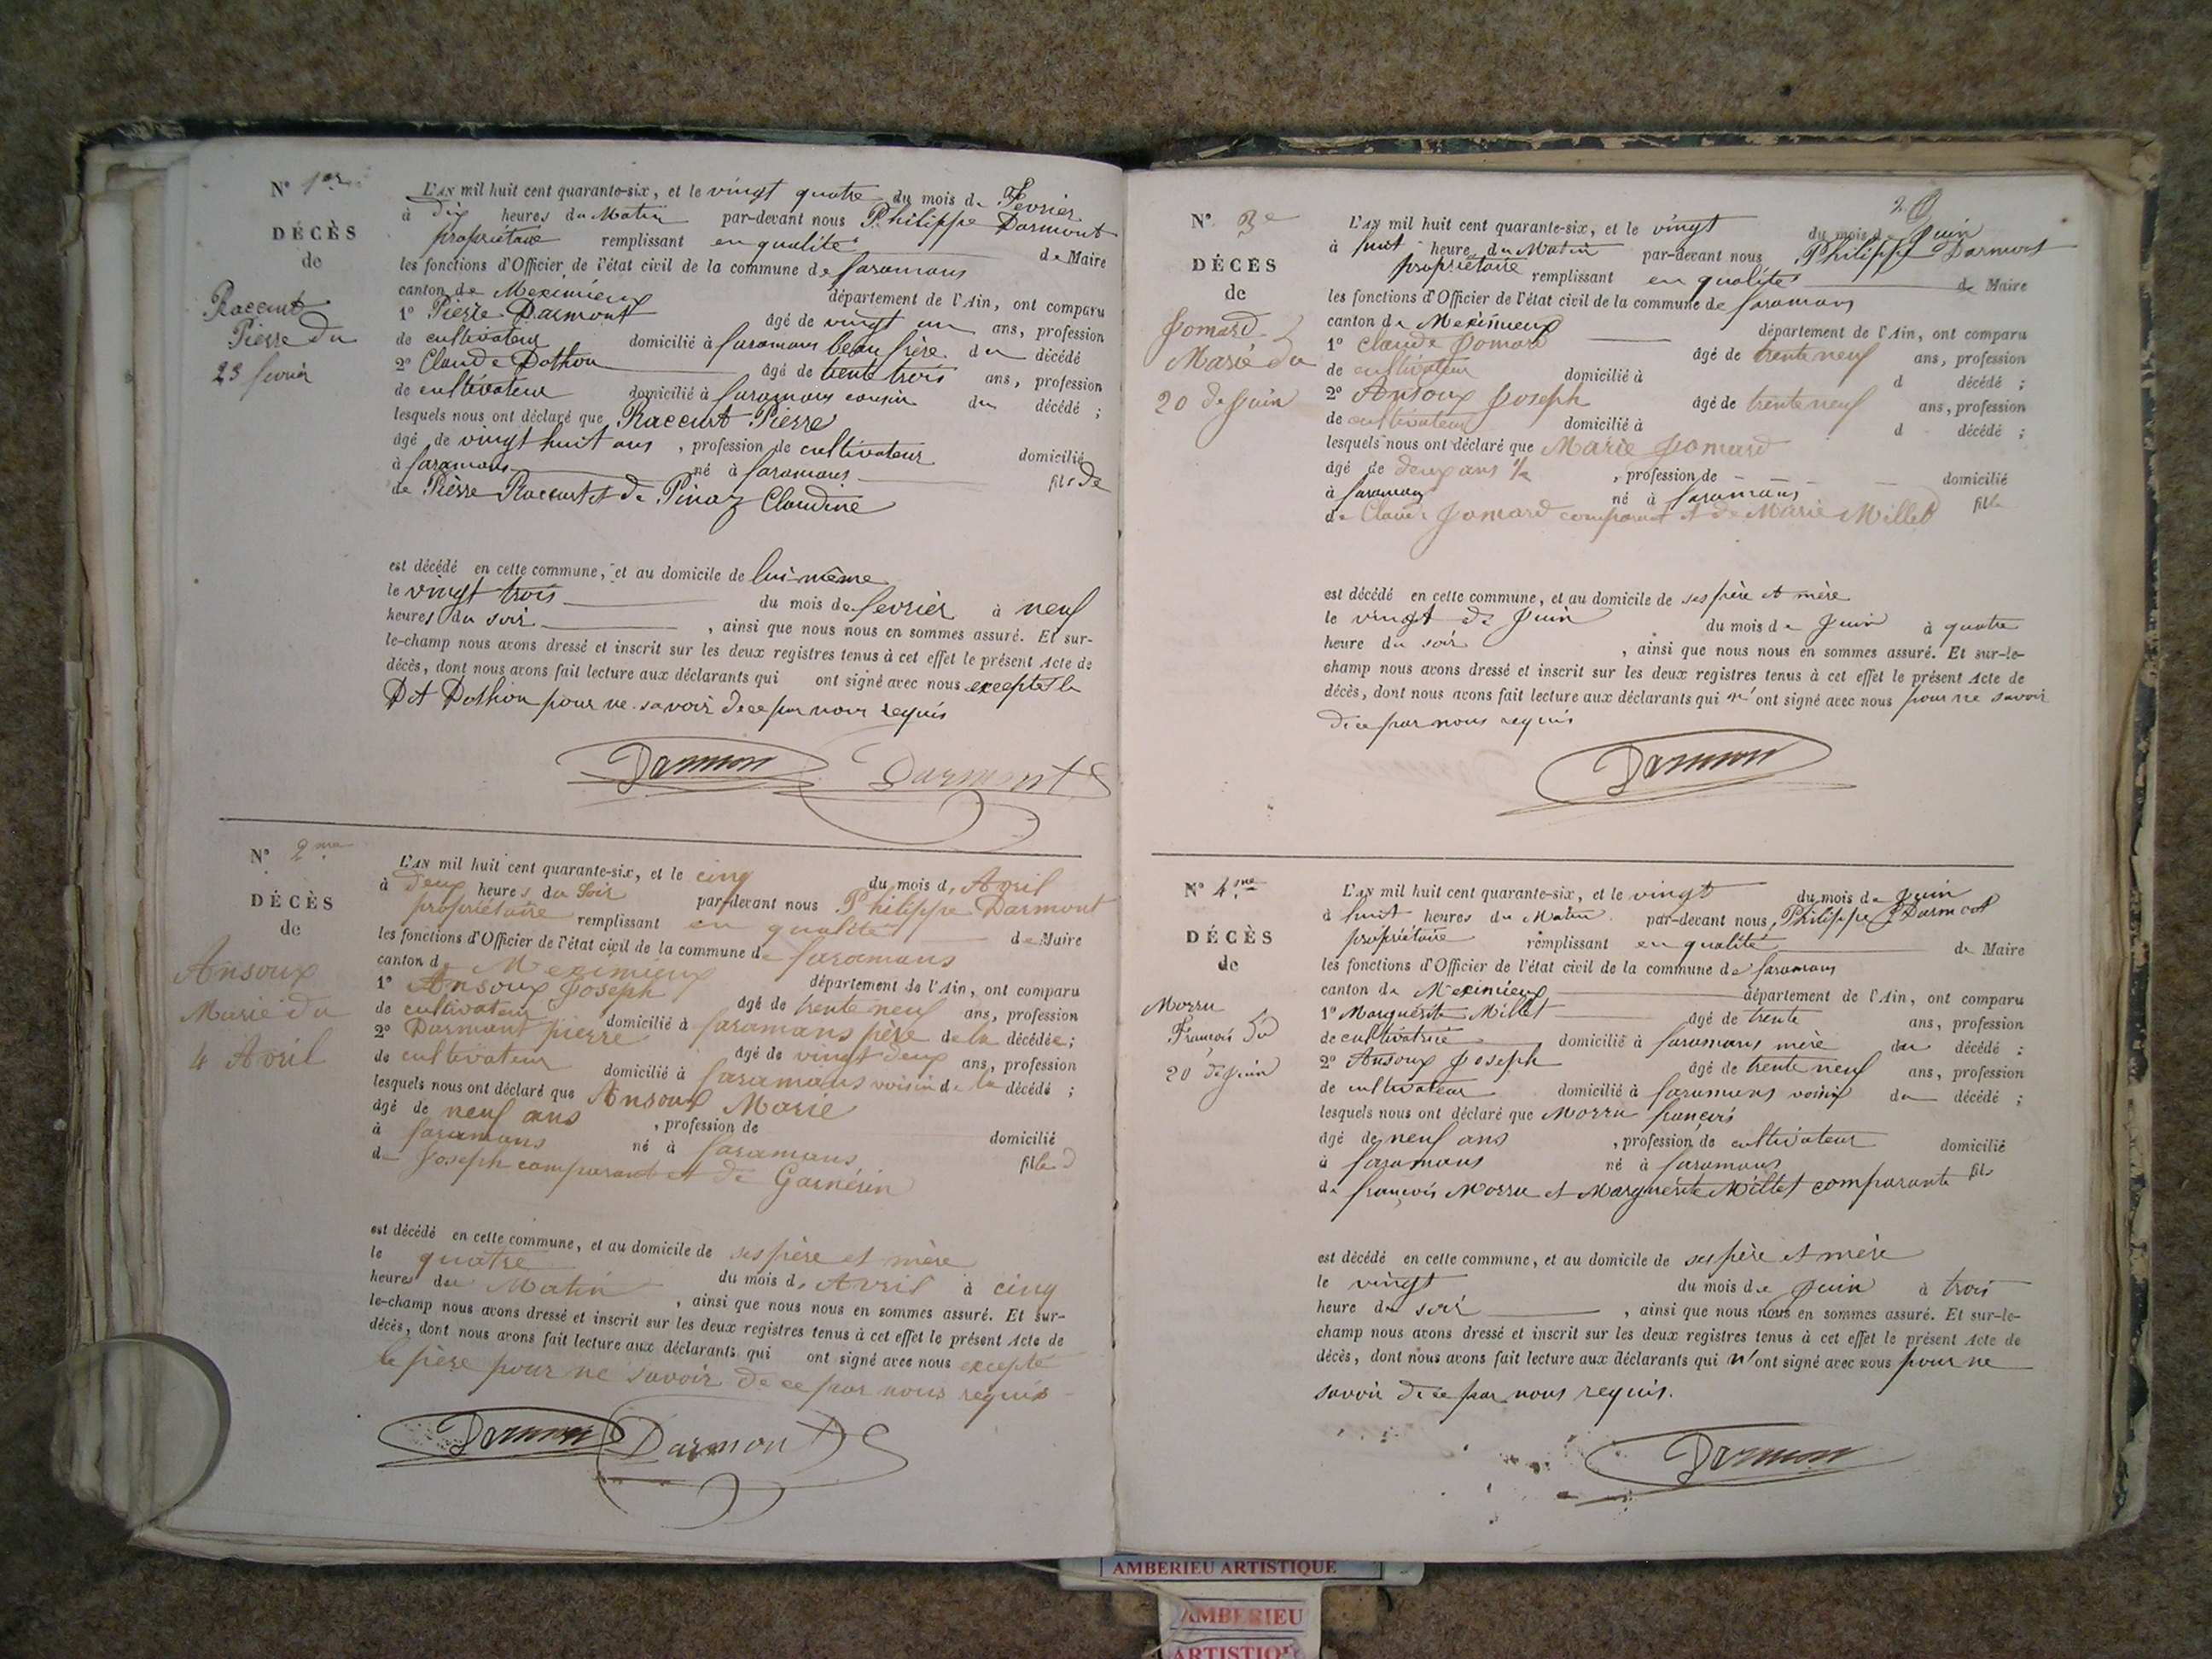 N° 1er
DÉCÈS
de
Raccurt
Pierre du
23 fevrier
L'AN mil huit cent quarante-six, et le vingt quatre du mois de Fevrier
à dix heures du Matin par-devant nous Philippe Darmont
propriétaire remplissant en qualité de Maire
les fonctions d'Officier de l'état civil de la commune de faramans
canton de Meximieux département de l'Ain, ont comparu
1° Pierre Darmont âgé de vingt un ans, profession
de cultivateur domicilié à faramans beau frère du décédé
2° Claude Dothon âgé de trente trois ans, profession
de cultivateur domicilié à faramans cousin du décédé ;
lesquels nous ont déclaré que Raccurt Pierre
âgé de vingt huit ans , profession de cultivateur domicilié
à faramans né à faramans fils de
de Pierre Raccurt et de Pinaz Claudine
est décédé en cette commune, et au domicile de lui même
le vingt trois du mois de fevrier à neuf
heures du soir , ainsi que nous nous en sommes assuré. Et sur-
le-champ nous avons dressé et inscrit sur les deux registres tenus à cet effet le présent Acte de
décès, dont nous avons fait lecture aux déclarants qui ont signé avec nous excepté le
Dt Dothon pour ne savoir de ce par nous requis
Darmon Darmont
N° 2me
DÉCÈS
de
Ansoux
Marie du
4 Avril
L'AN mil huit cent quarante-six, et le cinq du mois d' Avril
à deux heures du Soir par-devant nous Philippe Darmont
propriétaire remplissant en qualité de Maire
les fonctions d'Officier de l'état civil de la commune de faramans
canton de Meximieux département de l'Ain, ont comparu
1° Ansoux Joseph âgé de trente neuf ans, profession
de cultivateur domicilié à faramans père de la décédée ;
2° Darmont pierre âgé de vingt deux ans, profession
de cultivateur domicilié à faramans voisin de la décédé ;
lesquels nous ont déclaré que Ansoux Marie
âgé de neuf ans , profession de domicilié
à faramans né à faramans fille d
de Joseph comparant et de Garnerin
est décédé en cette commune, et au domicile de ses père et mère
le quatre du mois d' Avril à cinq
heures du Matin , ainsi que nous nous en sommes assuré. Et sur-
le-champ nous avons dressé et inscrit sur les deux registres tenus à cet effet le présent Acte de
décès, dont nous avons fait lecture aux déclarants qui ont signé avec nous excepté
le père pour ne savoir de ce par nous requis
Darmon Darmont
N° 3e
DÉCÈS
de
Jomard
Marie du
20 de Juin
L'AN mil huit cent quarante-six, et le vingt du mois de Juin
à huit heure du Matin par-devant nous Philippe Darmont
propriétaire remplissant en qualité de Maire
les fonctions d'Officier de l'état civil de la commune de faramans
canton de Meximieux département de l'Ain, ont comparu
1° Claude Jomard âgé de trente neuf ans, profession
de cultivateur domicilié à d décédé ;
2° Ansoux Joseph âgé de trente neuf ans, profession
de cultivateur domicilié à d décédé ;
lesquels nous ont déclaré que Marie Jomard
âgé de deux ans 1/2 , profession de domicilié
à faramans né à faramans fille
de Claude Jomard comparant et de Marie Millet
est décédé en cette commune, et au domicile de ses père et mère
le vingt de Juin du mois de Juin à quatre
heure du soir , ainsi que nous nous en sommes assuré. Et sur-le-
champ nous avons dressé et inscrit sur les deux registres tenus à cet effet le présent Acte de
décès, dont nous avons fait lecture aux déclarants qui n'ont signé avec nous pour ne savoir
de ce par nous requis
Darmon
N° 4me
DÉCÈS
de
Morru
François du
20 de Juin
L'AN mil huit cent quarante-six, et le vingt du mois de Juin
à huit heures du Matin par-devant nous Philippe Darmont
propriétaire remplissant en qualité de Maire
les fonctions d'Officier de l'état civil de la commune de faramans
canton de Meximieux département de l'Ain, ont comparu
1° Marguérite Millet âgé de trente ans, profession
de cultivatrice domicilié à faramans mère du décédé ;
2° Ansoux Joseph âgé de trente neuf ans, profession
de cultivateur domicilié à faramans voisin du décédé ;
lesquels nous ont déclaré que Morru françois
âgé de neuf ans , profession de cultivateur domicilié
à faramans né à faramans fils
de françois Morru et Marguérite Millet comparante
est décédé en cette commune, et au domicile de ses père et mère
le vingt du mois de Juin à trois
heure du soir , ainsi que nous nous en sommes assuré. Et sur-le-
champ nous avons dressé et inscrit sur les deux registres tenus à cet effet le présent Acte de
décès, dont nous avons fait lecture aux déclarants qui n'ont signé avec nous pour ne
savoir de ce par nous requis.
Darmon
AMBERIEU ARTISTIQUE
AMBERIEU
ARTISTIQU